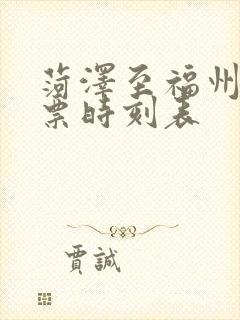 菏澤至福州
票時刻表
賈誠